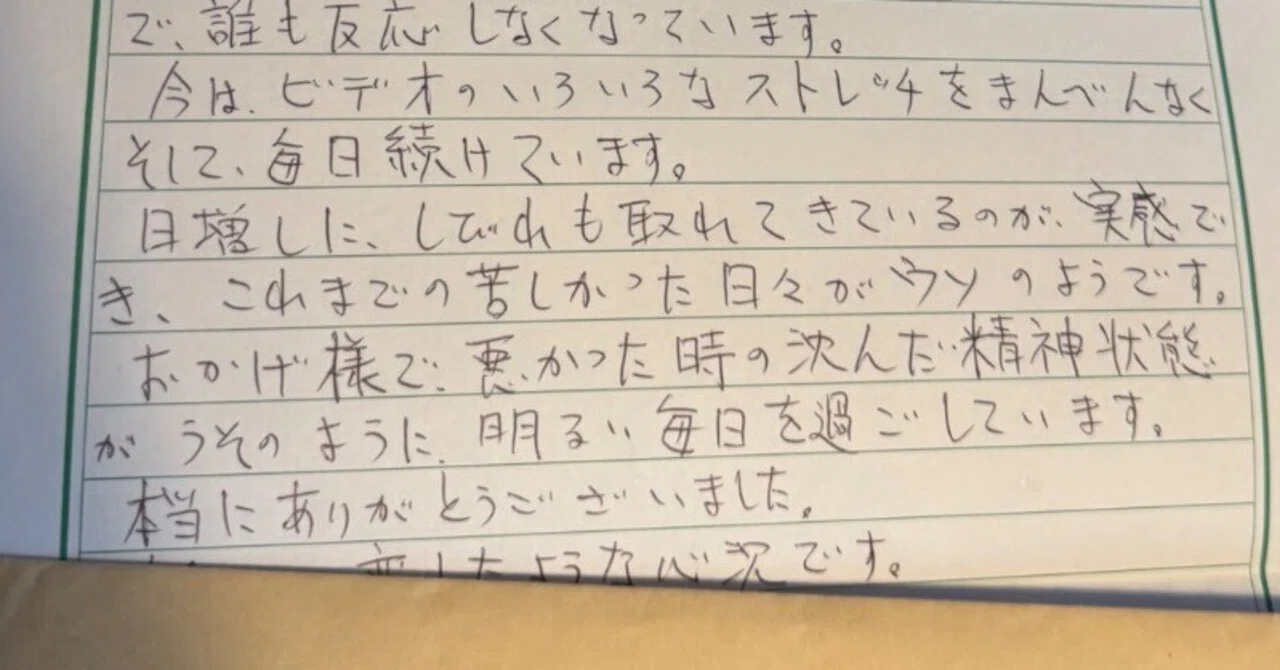 で、誰も反応しなくなっています。
今は、ビデオのいろいろなストレッチをまんべんなく
そして、毎日続けています。
日増しに、しびれも取れてきているのが、実感で
き、これまでの苦しかった日々がウソのようです。
おかげ様で、悪かった時の沈んだ精神状態
がうそのように、明るい毎日を過ごしています。
本当にありがとうございました。
したような心況です。